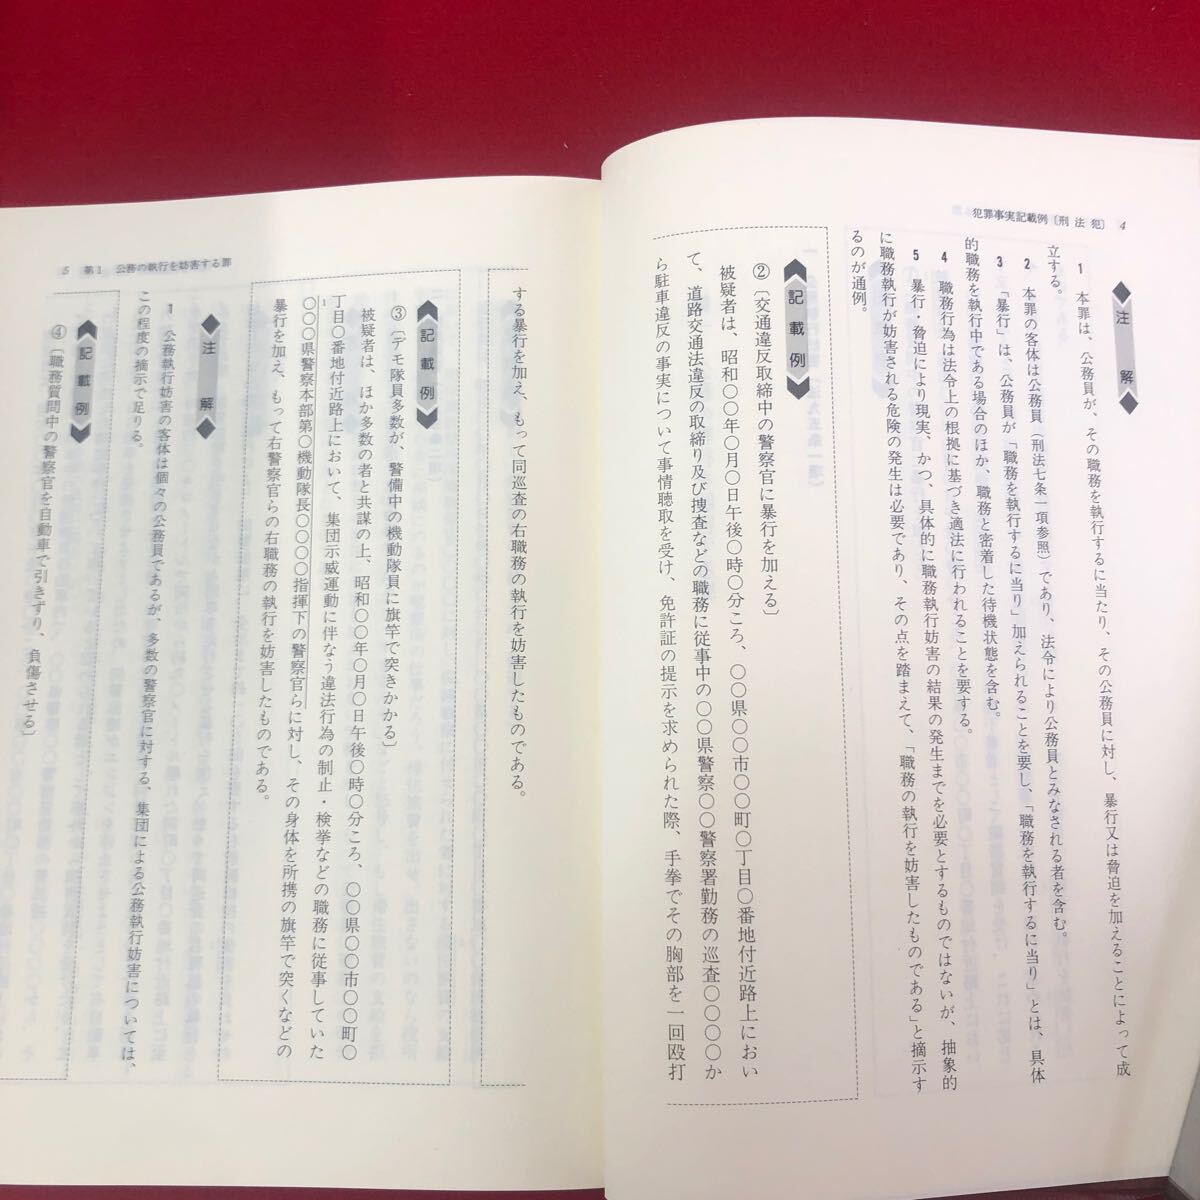 犯罪事実記載例〔刑 法 犯〕 4
◆注 解◆
1 本罪は、公務員が、その職務を執行するに当たり、その公務員に対し、暴行又は脅迫を加えることによって成
立する。
2 本罪の客体は公務員（刑法七条一項参照）であり、法令により公務員とみなされる者を含む。
3 「暴行」は、公務員が「職務を執行するに当り」加えられることを要し、「職務を執行するに当り」とは、具体
的職務を執行中である場合のほか、職務と密着した待機状態を含む。
4 職務行為は法令上の根拠に基づき適法に行われることを要する。
5 暴行・脅迫により現実、かつ、具体的に職務執行妨害の結果の発生までを必要とするものではないが、抽象的
に職務執行が妨害される危険の発生は必要であり、その点を踏まえて、「職務の執行を妨害したものである」と摘示す
るのが通例。
記載例
②〔交通違反取締中の警察官に暴行を加える〕
被疑者は、昭和〇〇年〇月〇日午後〇時〇分ころ、〇〇県〇〇市〇〇町〇丁目〇番地付近路上におい
て、道路交通法違反の取締り及び捜査などの職務に従事中の〇〇県警察〇〇警察署勤務の巡査〇〇〇〇か
ら駐車違反の事実について事情聴取を受け、免許証の提示を求められた際、手拳でその胸部を一回殴打
5 第1 公務の執行を妨害する罪
する暴行を加え、もって同巡査の右職務の執行を妨害したものである。
記載例
③〔デモ隊員多数が、警備中の機動隊員に旗竿で突きかかる〕
被疑者は、ほか多数の者と共謀の上、昭和〇〇年〇月〇日午後〇時〇分ころ、〇〇県〇〇市〇〇町〇
丁目〇番地付近路上において、集団示威運動に伴なう違法行為の制止・検挙などの職務に従事していた
1
〇〇〇県警察本部第〇機動隊長〇〇〇〇指揮下の警察官らに対し、その身体を所携の旗竿で突くなどの
暴行を加え、もって右警察官らの右職務の執行を妨害したものである。
◆注 解◆
1 公務執行妨害の客体は個々の公務員であるが、多数の警察官に対する、集団による公務執行妨害については、
この程度の摘示で足りる。
記載例
④〔職務質問中の警察官を自動車で引きずり、負傷させる〕